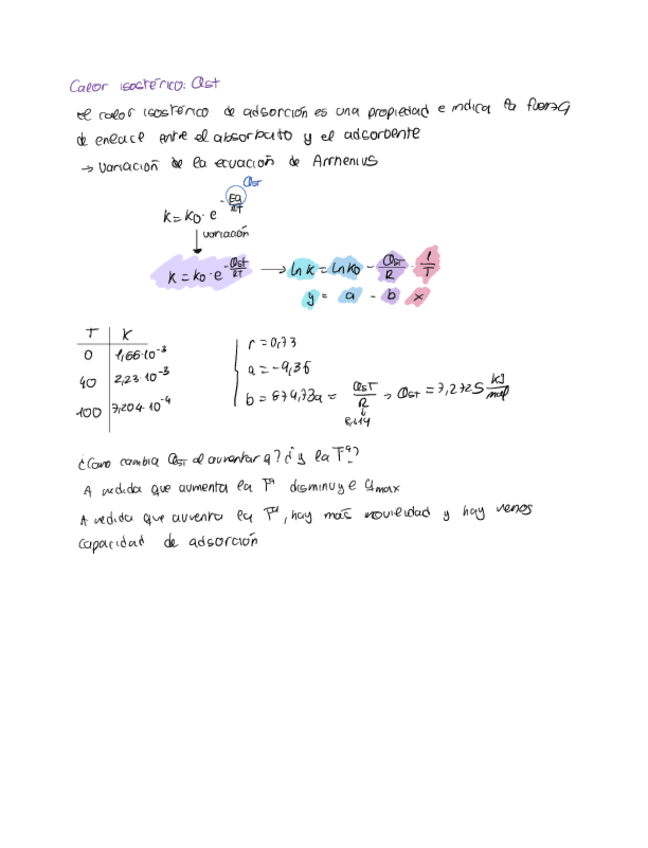 Calor isostérico: Qst
el calor isostérico de adsorción es una propiedad e indica la fuerza
de enlace entre el absorbato y el adsorbente
→ Variación de la ecuación de Arrhenius
QST
k = k0 · e^(-Ea/RT)
variación
k = k0 · e^(-Qst/RT) → ln k = ln k0 - QST/R · 1/T
y = a - b x
T K
0 1,66·10^-3
40 2,23·10^-3
100 7,204·10^-4
r = 0,73
a = -9,36
b = 874,732 = QST/R → QST = 7,2725 kJ/mol
8,314
¿Como cambia QST al aumentar q? ¿y la Tª?
A medida que aumenta la Tª disminuye qmax
A medida que aumenta la Tª, hay más movilidad y hay menos
capacidad de adsorción